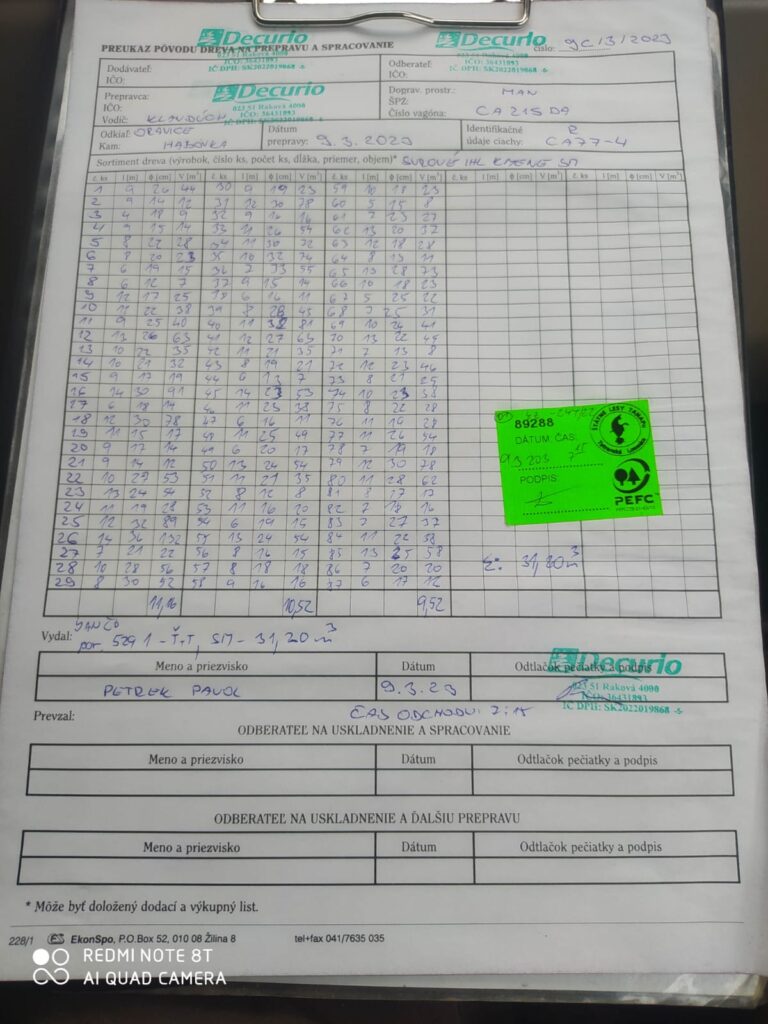 Decurio Decurio
PREUKAZ PÔVODU DREVA NA PREPRAVU A SPRACOVANIE číslo: 9C/3/2023
023 51 Raková 4090
IČO: 36431893
IČ DPH: SK2022019868 -5-
Dodávateľ:
IČO:
Odberateľ:
IČO:
Decurio
023 51 Raková 4090
Prepravca:
IČO:
Vodič:
Doprav. prostr.: MAN
ŠPZ:
Číslo vagóna: CA 215 DA
Odkiaľ: ORAVICE
Kam: HABOVKA
Dátum
prepravy: 9.3.2023
Identifikačné
údaje ciachy: CA77-4
Sortiment dreva (výrobok, číslo ks, počet ks, dĺžka, priemer, objem)* SUROVÉ IHL KMENE SM
č. ks l [m] ϕ [cm] V [m³] č. ks l [m] ϕ [cm] V [m³] č. ks l [m] ϕ [cm] V [m³] č. ks l [m] ϕ [cm] V [m³] č. ks l [m] ϕ [cm] V [m³]
1 9 26 44 30 9 19 23 59 10 18 23
2 9 14 12 31 12 30 78 60 5 15 8
3 4 18 9 32 9 16 16 61 7 23 27
4 9 15 14 33 11 26 54 62 13 20 37
5 8 22 28 34 11 30 72 63 12 18 28
6 8 20 23 35 10 32 74 64 8 13 11
7 6 19 15 36 7 33 55 65 13 28 73
8 6 12 7 37 9 15 14 66 10 18 23
9 12 17 25 38 6 16 11 67 5 25 22
10 11 22 38 39 8 28 45 68 7 25 31
11 9 25 40 40 11 32 81 69 10 24 41
12 13 26 63 41 12 27 63 70 13 22 45
13 10 22 35 42 11 21 35 71 7 13 8
14 10 21 32 43 8 19 21 72 12 23 46
15 9 17 19 44 6 13 7 73 8 21 25
16 14 30 91 45 14 23 53 74 10 23 38
17 6 18 14 46 11 23 38 75 8 22 28
18 12 30 78 47 6 16 11 76 11 19 28
19 11 15 17 48 11 25 49 77 11 26 54
20 9 17 14 49 6 20 17 78 7 19 18
21 9 14 12 50 13 24 54 79 12 30 78
22 10 29 53 51 11 21 35 80 11 28 62
23 13 24 54 52 8 12 8 81 8 17 17
24 11 19 28 53 11 16 20 82 7 18 16
25 12 32 89 54 6 19 15 83 7 27 37
26 14 36 132 55 13 24 54 84 11 22 38
27 7 21 22 56 8 16 15 85 13 25 58
28 10 28 56 57 8 18 18 86 7 20 20
29 8 30 52 58 9 16 16 87 6 17 12
11,16 10,52 9,52
89288
DÁTUM, ČAS
PODPIS
ŠTÁTNE LESY TANAPU
Tatranská Lomnica
PEFC
Σ: 31,20m³
Vydal: JANČO
por. 529 1 - TŤ, SM - 31,20 m³
Meno a priezvisko Dátum Odtlačok pečiatky a podpis
PETREK PAVOL 9.3.23
Decurio
023 51 Raková 4090
IČO: 36431893
IČ DPH: SK2022019868 -5-
Prevzal: ČAS ODCHODU: 7:15
ODBERATEĽ NA USKLADNENIE A SPRACOVANIE
Meno a priezvisko Dátum Odtlačok pečiatky a podpis
ODBERATEĽ NA USKLADNENIE A ĎALŠIU PREPRAVU
Meno a priezvisko Dátum Odtlačok pečiatky a podpis
* Môže byť doložený dodací a výkupný list.
228/1 ES EkonSpo, P.O.Box 52, 010 08 Žilina 8 tel+fax 041/7635 035
REDMI NOTE 8T
AI QUAD CAMERA